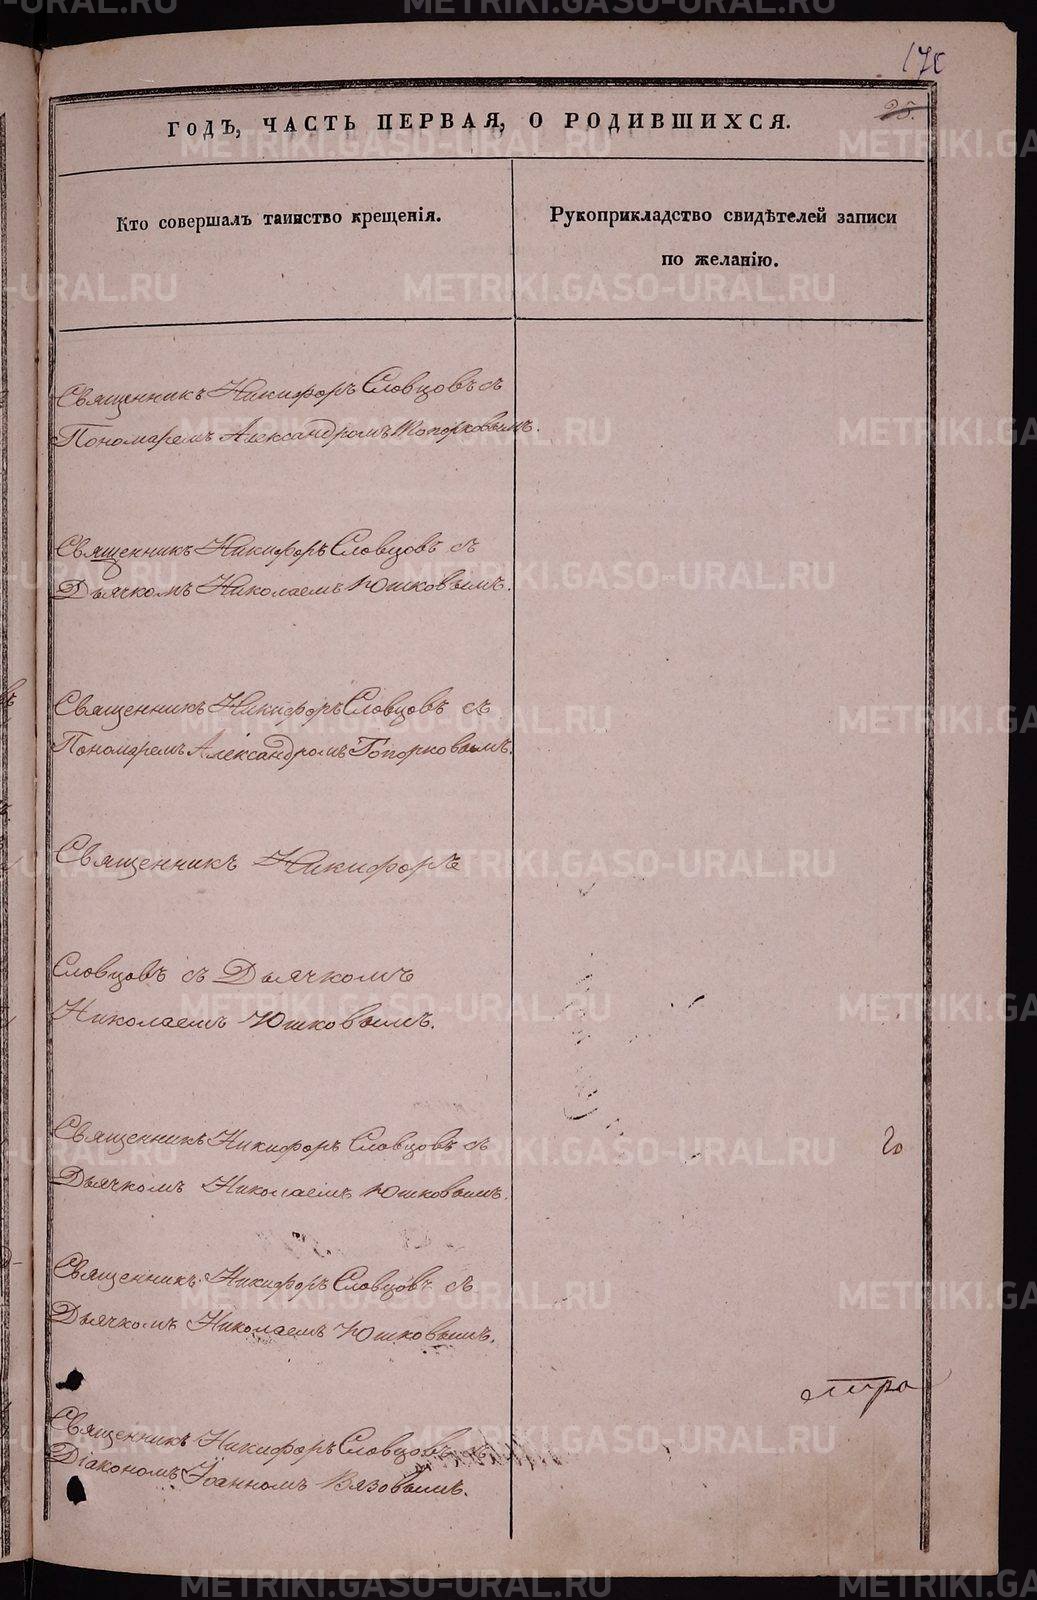 170
25.
ГОДЪ, ЧАСТЬ ПЕРВАЯ, О РОДИВШИХСЯ.
Кто совершалъ таинство крещенія.
Рукоприкладство свидѣтелей записи
по желанію.
Священникъ Никифоръ Словцовъ съ
Пономаремъ Александромъ Топорковымъ.
Священникъ Никифоръ Словцовъ съ
Дьячкомъ Николаемъ Юшковымъ.
Священникъ Никифоръ Словцовъ съ
Пономаремъ Александромъ Топорковымъ.
Священникъ Никифоръ
Словцовъ съ Дьячкомъ
Николаемъ Юшковымъ.
Священникъ Никифоръ Словцовъ съ
Дьячкомъ Николаемъ Юшковымъ.
Священникъ Никифоръ Словцовъ съ
Дьячкомъ Николаемъ Юшковымъ.
Священникъ Никифоръ Словцовъ съ
Діакономъ Іоанномъ Вязовымъ.
METRIKI.GASO-URAL.RU